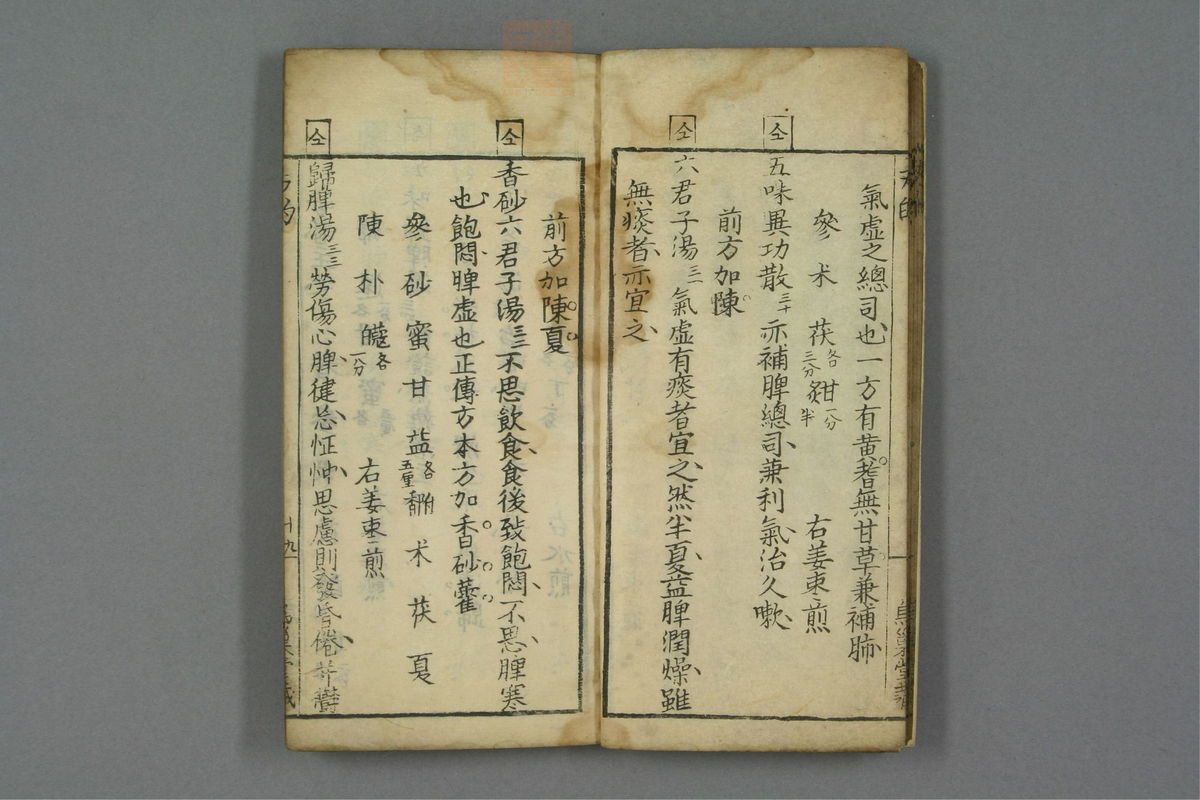 氣虛之總司也一方有黄耆無甘草兼補肺
參 术 茯各三分 甜一分半 右姜棗煎
仝
五味異功散三十亦補脾總司兼利氣治久嗽
前方加陳
仝
六君子湯三一氣虛有痰者宜之然半夏益脾潤燥雖
無痰者亦宜之
前方加陳夏
仝
香砂六君子湯三二不思飲食食後致飽悶不思脾寒
也飽悶脾虛也正傳方本方加香砂藿
參 砂 蜜 甘 益各五里 术 茯 夏
陳 朴 各一分 右姜棗煎
仝
歸脾湯三三勞傷心脾健忘怔忡思慮則發昏倦并欝
十九